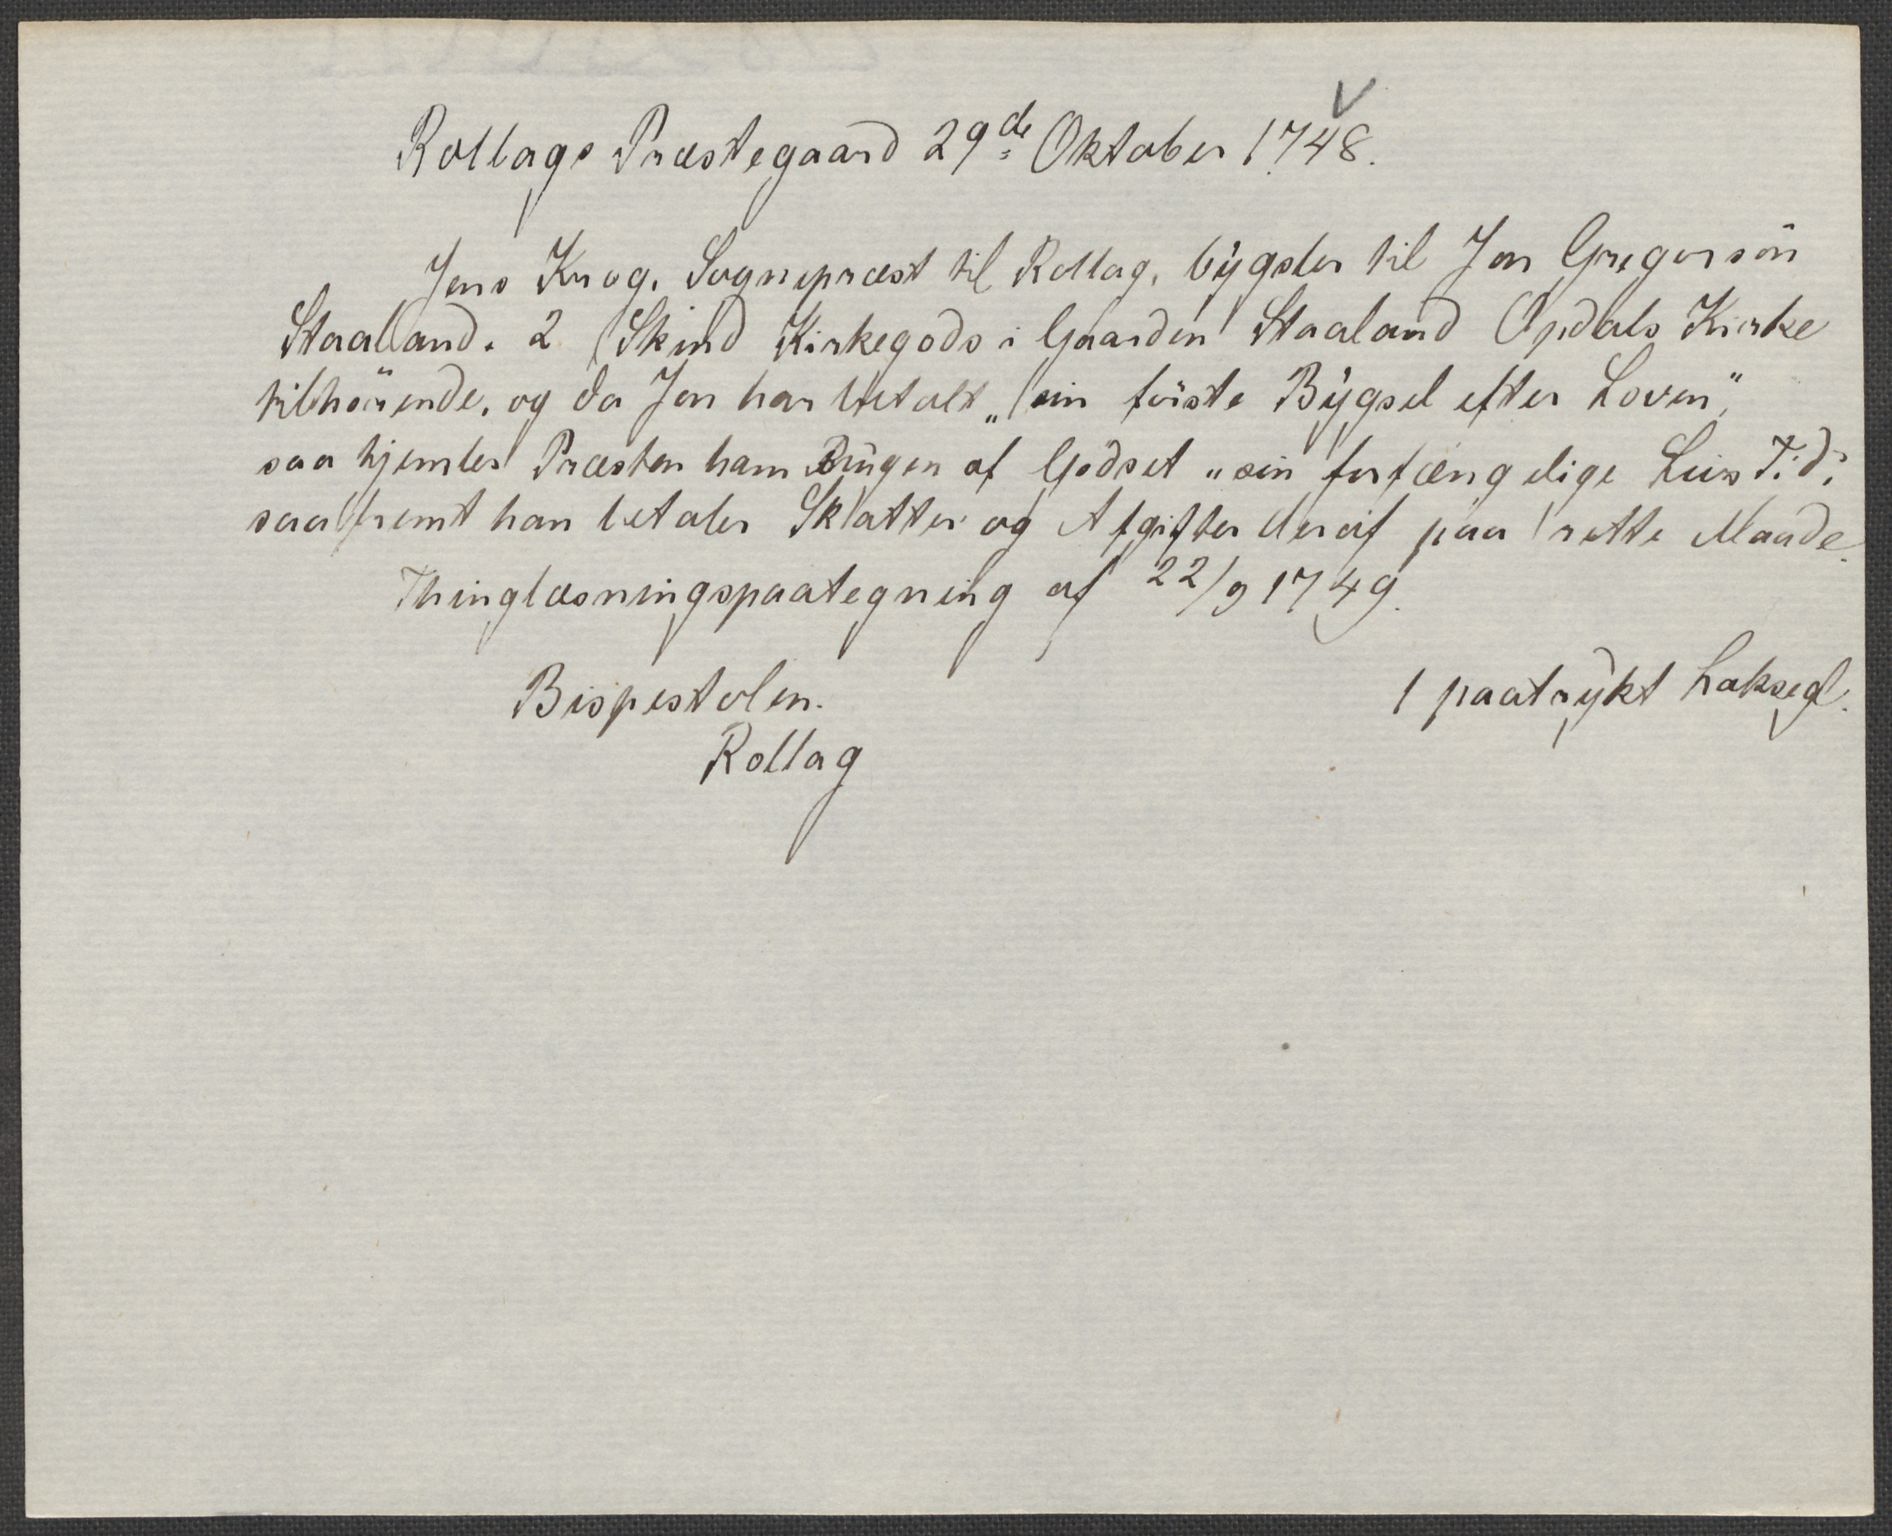 Rollags Præstegaard 29de Oktober 1748.
Jens Krog, Sognepræst til Rollag, bygsler til Jon Gregersön
Staaland, 2 Skind Kirkegods i Gaarden Staaland Opdals Kirke
tilhörende, og da Jon har betalt „sin förste Bygsel efter Loven",
saa hjemler Præsten ham Brugen af Godset „sin forfængelige Livs Tid",
saafremt han betaler Skatter og Afgifter deraf paa rette Maade.
Thinglæsningspaategning af 22/9 1749.
Bispestolen. 1 paatrykt Laksegl.
Rollag